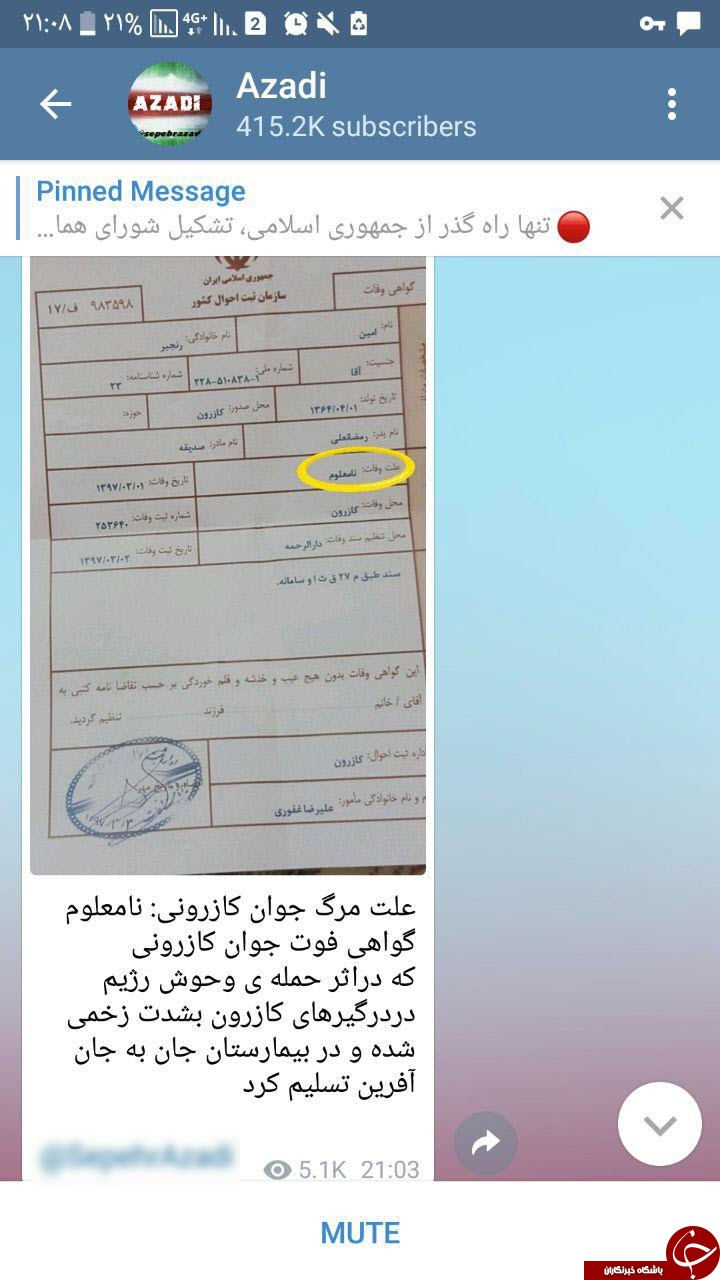 ۲۱:۰۸ ۲۱% 4G+ 2
AZADI
@sepehrazad
Azadi
415.2K subscribers
Pinned Message
تنها راه گذر از جمهوری اسلامی، تشکیل شورای هما...
جمهوری اسلامی ایران
سازمان ثبت احوال کشور
گواهی وفات
ف/۱۷ ۹۸۳۵۹۸
نام: امین
نام خانوادگی: رنجبر
جنسیت: آقا
شماره ملی: ۲۲۸-۵۱۰۸۳۸-۱
شماره شناسنامه: ۲۳
تاریخ تولد: ۱۳۶۴/۰۴/۰۱
محل صدور: کازرون
حوزه:
نام پدر: رمضانعلی
نام مادر: صدیقه
علت وفات: نامعلوم
تاریخ وفات: ۱۳۹۷/۰۳/۰۱
محل وفات: کازرون
شماره ثبت وفات: ۲۵۳۶۴۰
محل تنظیم سند وفات: دارالرحمه
تاریخ ثبت وفات: ۱۳۹۷/۰۳/۰۳
سند طبق م ۲۷ ق ث ا و سامانه.
این گواهی وفات بدون هیچ عیب و خدشه و قلم خوردگی بر حسب تقاضا نامه کتبی به
آقای / خانم فرزند تنظیم گردید.
داره ثبت احوال: کازرون
م و نام خانوادگی مأمور: علیرضا غفوری
علت مرگ جوان کازرونی: نامعلوم
گواهی فوت جوان کازرونی
که دراثر حمله ی وحوش رژیم
دردرگیرهای کازرون بشدت زخمی
شده و در بیمارستان جان به جان
آفرین تسلیم کرد
@SepehrAzadi
5.1K 21:03
MUTE
باشگاه خبرنگاران